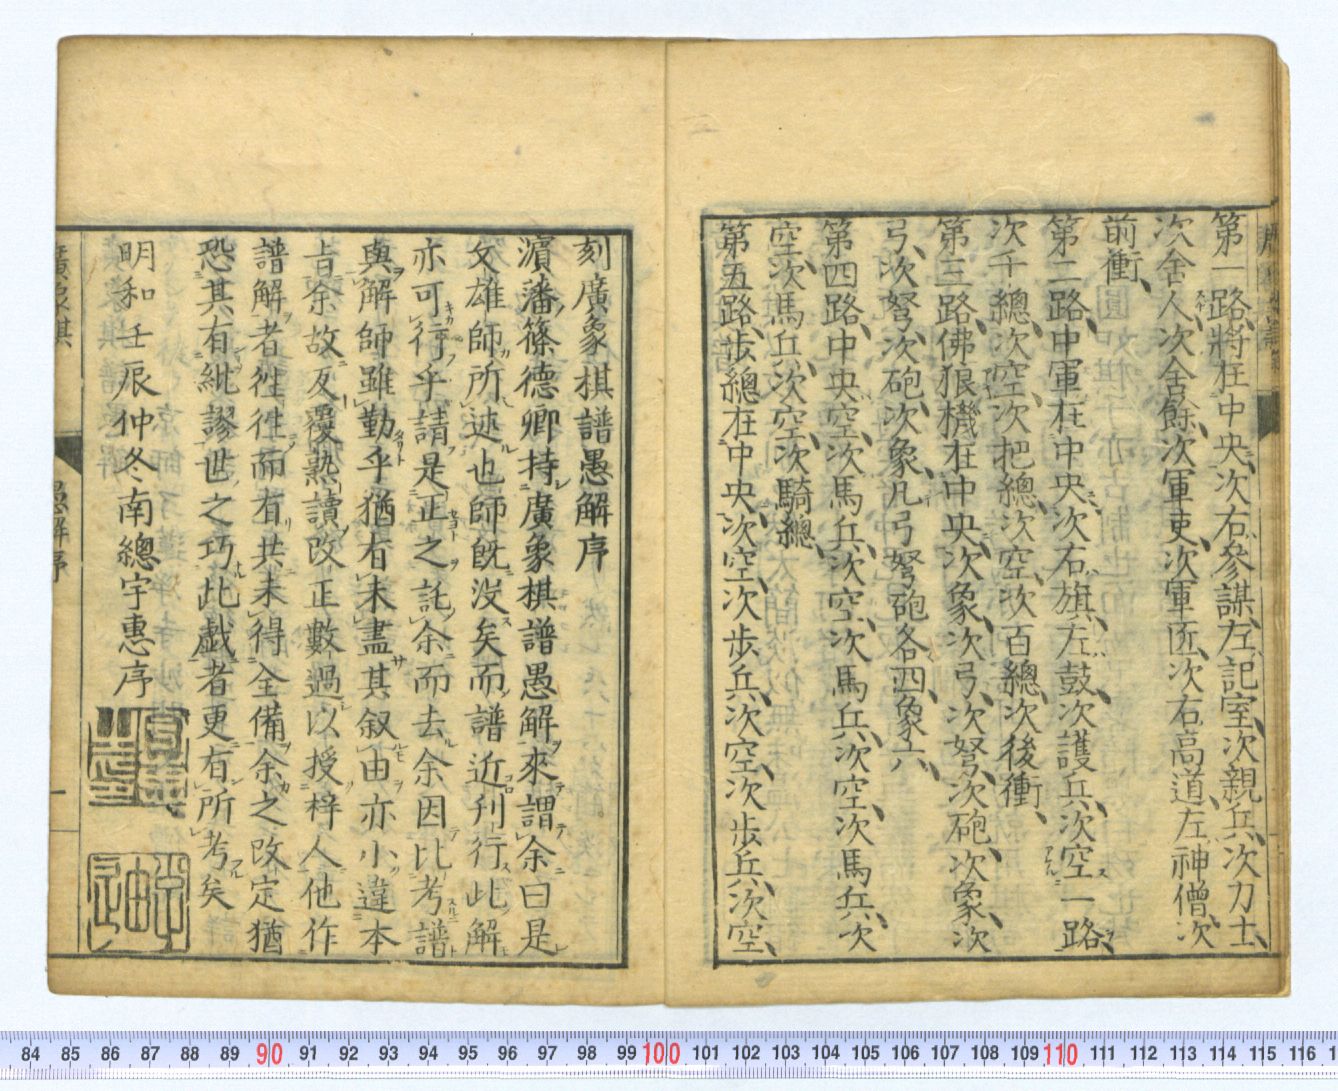 第一路將在中央次右參謀左記室次親兵次力士
次舍人次舍餘次軍吏次軍匠次右高道左神僧次
前衝
第二路中軍在中央次右旗左鼓次護兵次空一路
次千總次空次把總次空次百總次後衝
第三路佛狼機在中央次象次弓次弩次砲次象次
弓次弩次砲次象凡弓弩砲各四象六
第四路中央空次馬兵次空次馬兵次空次馬兵次
空次馬兵次空次騎總
第五路步總在中央次空次步兵次空次步兵次空
刻廣象棋譜愚解序
濵藩篠德卿持廣象棋譜愚解來謂余曰是
父雄師所述也師既沒矣而譜近刊行此解
亦可行乎請是正之託余而去余因比考譜
與解師雖勤乎猶有未盡其叙由亦小違本
旨余故反覆熟讀改正數過以授梓人他作
譜解者徃徃而有共未得全備余之改定猶
恐其有紕謬世之巧此戯者更有所考矣
明和壬辰仲冬南總宇惠序
廣象棋
愚解序
一
84 85 86 87 88 89 90 91 92 93 94 95 96 97 98 99 100 101 102 103 104 105 106 107 108 109 110 111 112 113 114 115 116